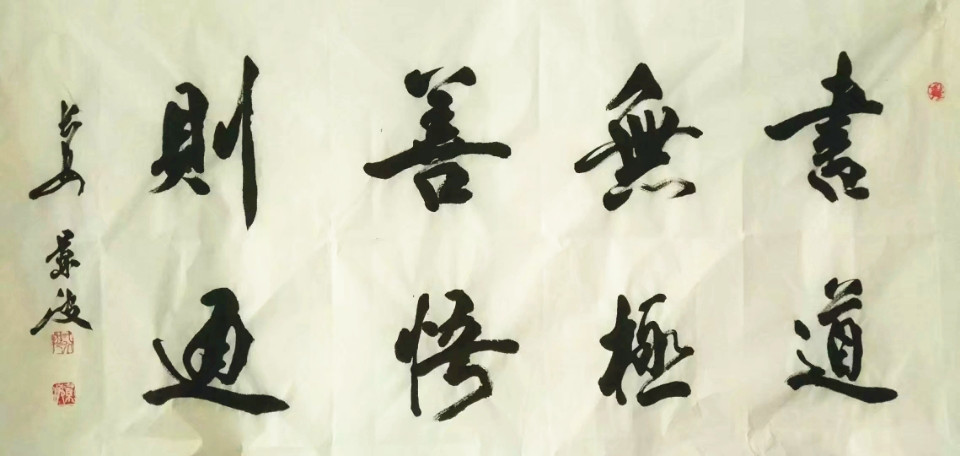 書道
無極
善悟
則通
長安 景波